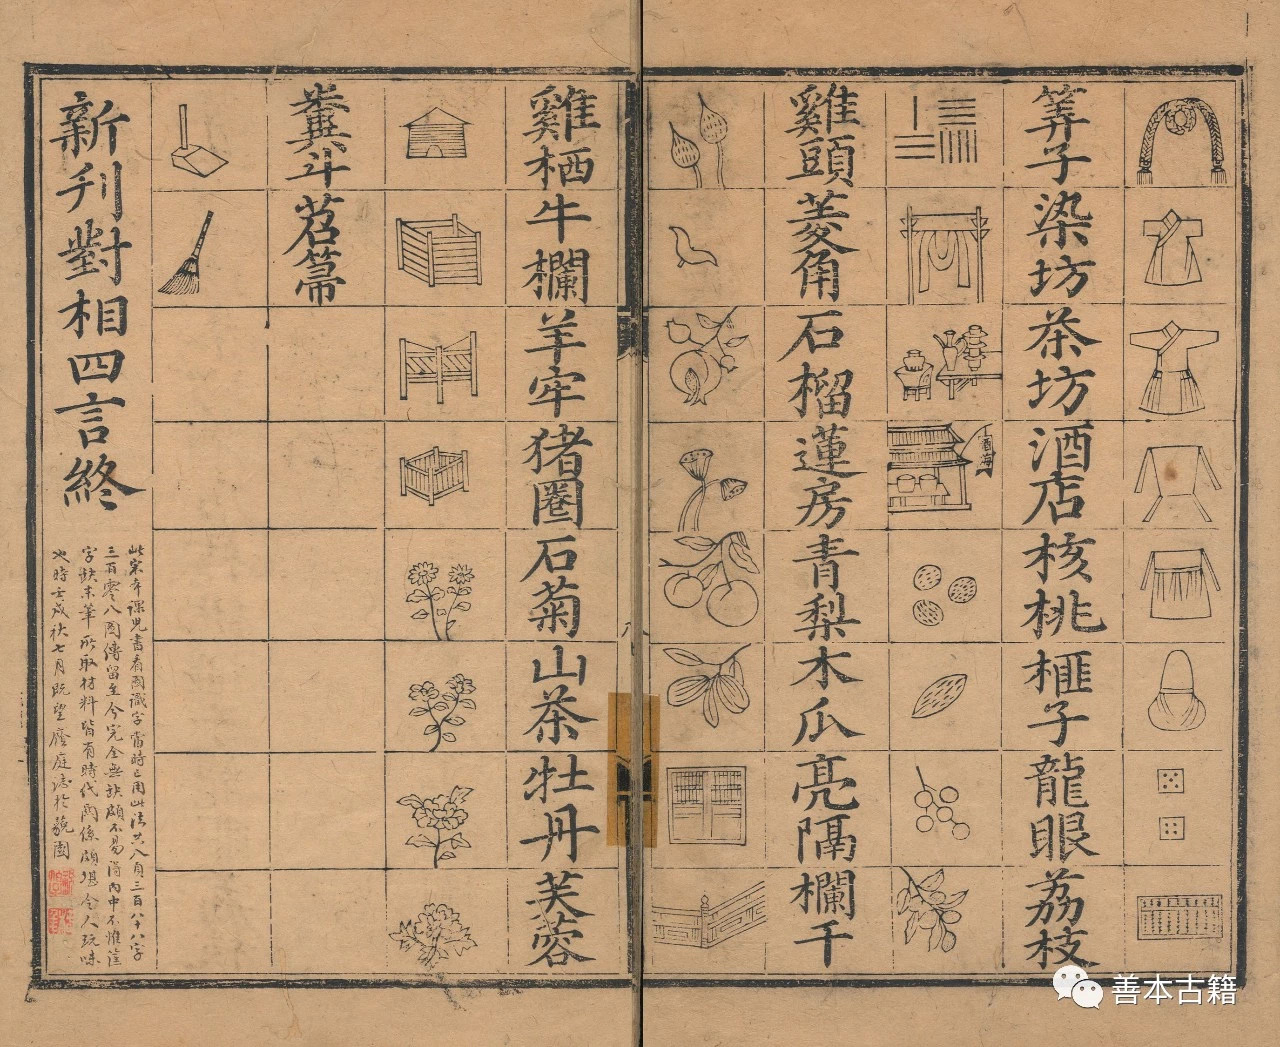 筭子染坊茶坊酒店核桃榧子龍眼荔枝
酒海
雞頭菱角石榴蓮房青梨木瓜亮隔欄干
雞栖牛欄羊牢猪圈石菊山茶牡丹芙蓉
糞斗苕箒
新刊對相四言終
此宋本課兒書看圖識字當時已用此法共八頁三百八十八字
三百零八圖傳留至今完全無缺頗不易得內中不惟筐
字缺末筆所取材料皆有時代關係頗堪令人玩味
也時壬戌秋七月既望 庭誌於 園
善本古籍